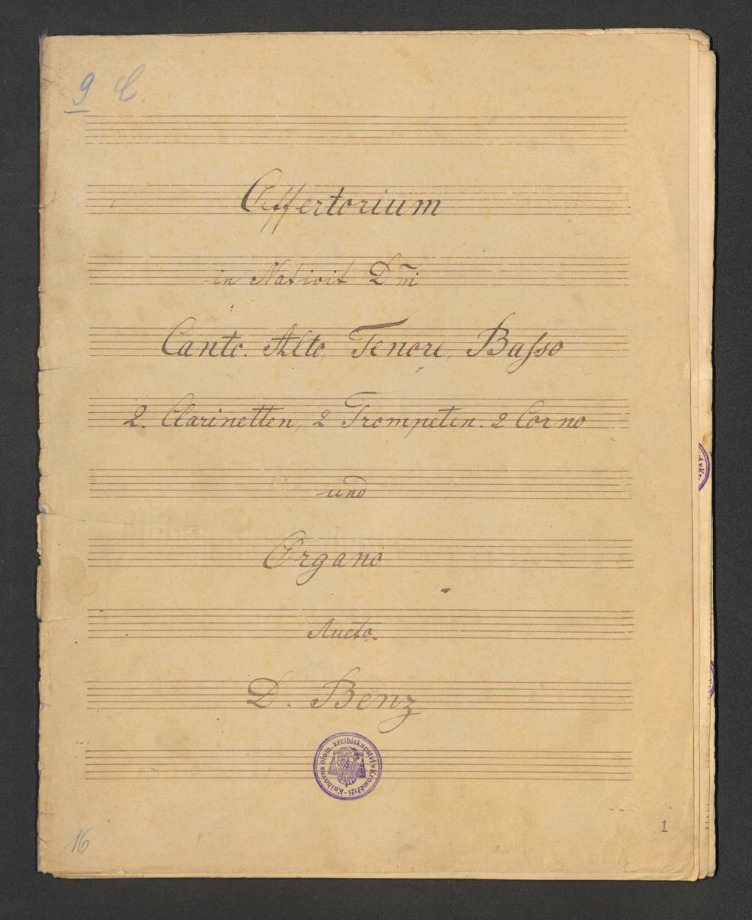 9 C.
Offertorium
in Nativit Dm̃i
Canto. Alto, Tenore, Basso
2. Clarinetten, 2 Trompeten. 2 Corno
und
Organo
Aucto.
D. Benz
Knihovna olom. arcibiskupství v Kroměříži
16
1